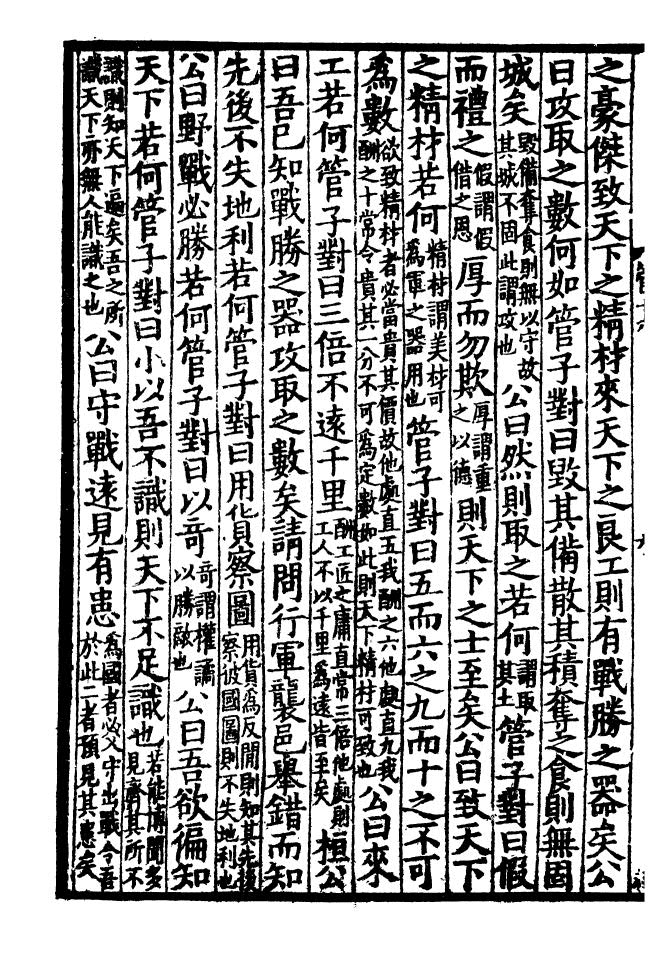 之豪傑致天下之精材來天下之良工則有戰勝之器矣公
曰攻取之數何如管子對曰毀其備散其積奪之食則無固
城矣毀備奪食則無以守故其城不固此謂攻也公曰然則取之若何謂取其士管子對曰假
而禮之假謂假借之恩厚而勿欺厚謂重之以德則天下之士至矣公曰致天下
之精材若何精材謂美材可為軍之器用也管子對曰五而六之九而十之不可
爲數欲致精材者必當貴其價故他處直五我酬之六他處直九我酬之十常令貴其一分不可爲定數如此則天下精材可致也公曰來
工若何管子對曰三倍不遠千里酬工匠之庸直常三倍他處則工人不以千里爲遠皆至矣桓公
曰吾已知戰勝之器攻取之數矣請問行軍襲邑舉錯而知
先後不失地利若何管子對曰用貨察圖用貨爲反間則知其先後察彼國圖則不失地利也
公曰野戰必勝若何管子對曰以奇奇謂權譎以勝敵也公曰吾欲徧知
天下若何管子對曰小以吾不識則天下不足識也若能博聞多見齊其所不
識則知天下遍矣吾之所識天下亦無人能識之也公曰守戰遠見有患爲國者必父守出戰令吾於此二者預見其患矣